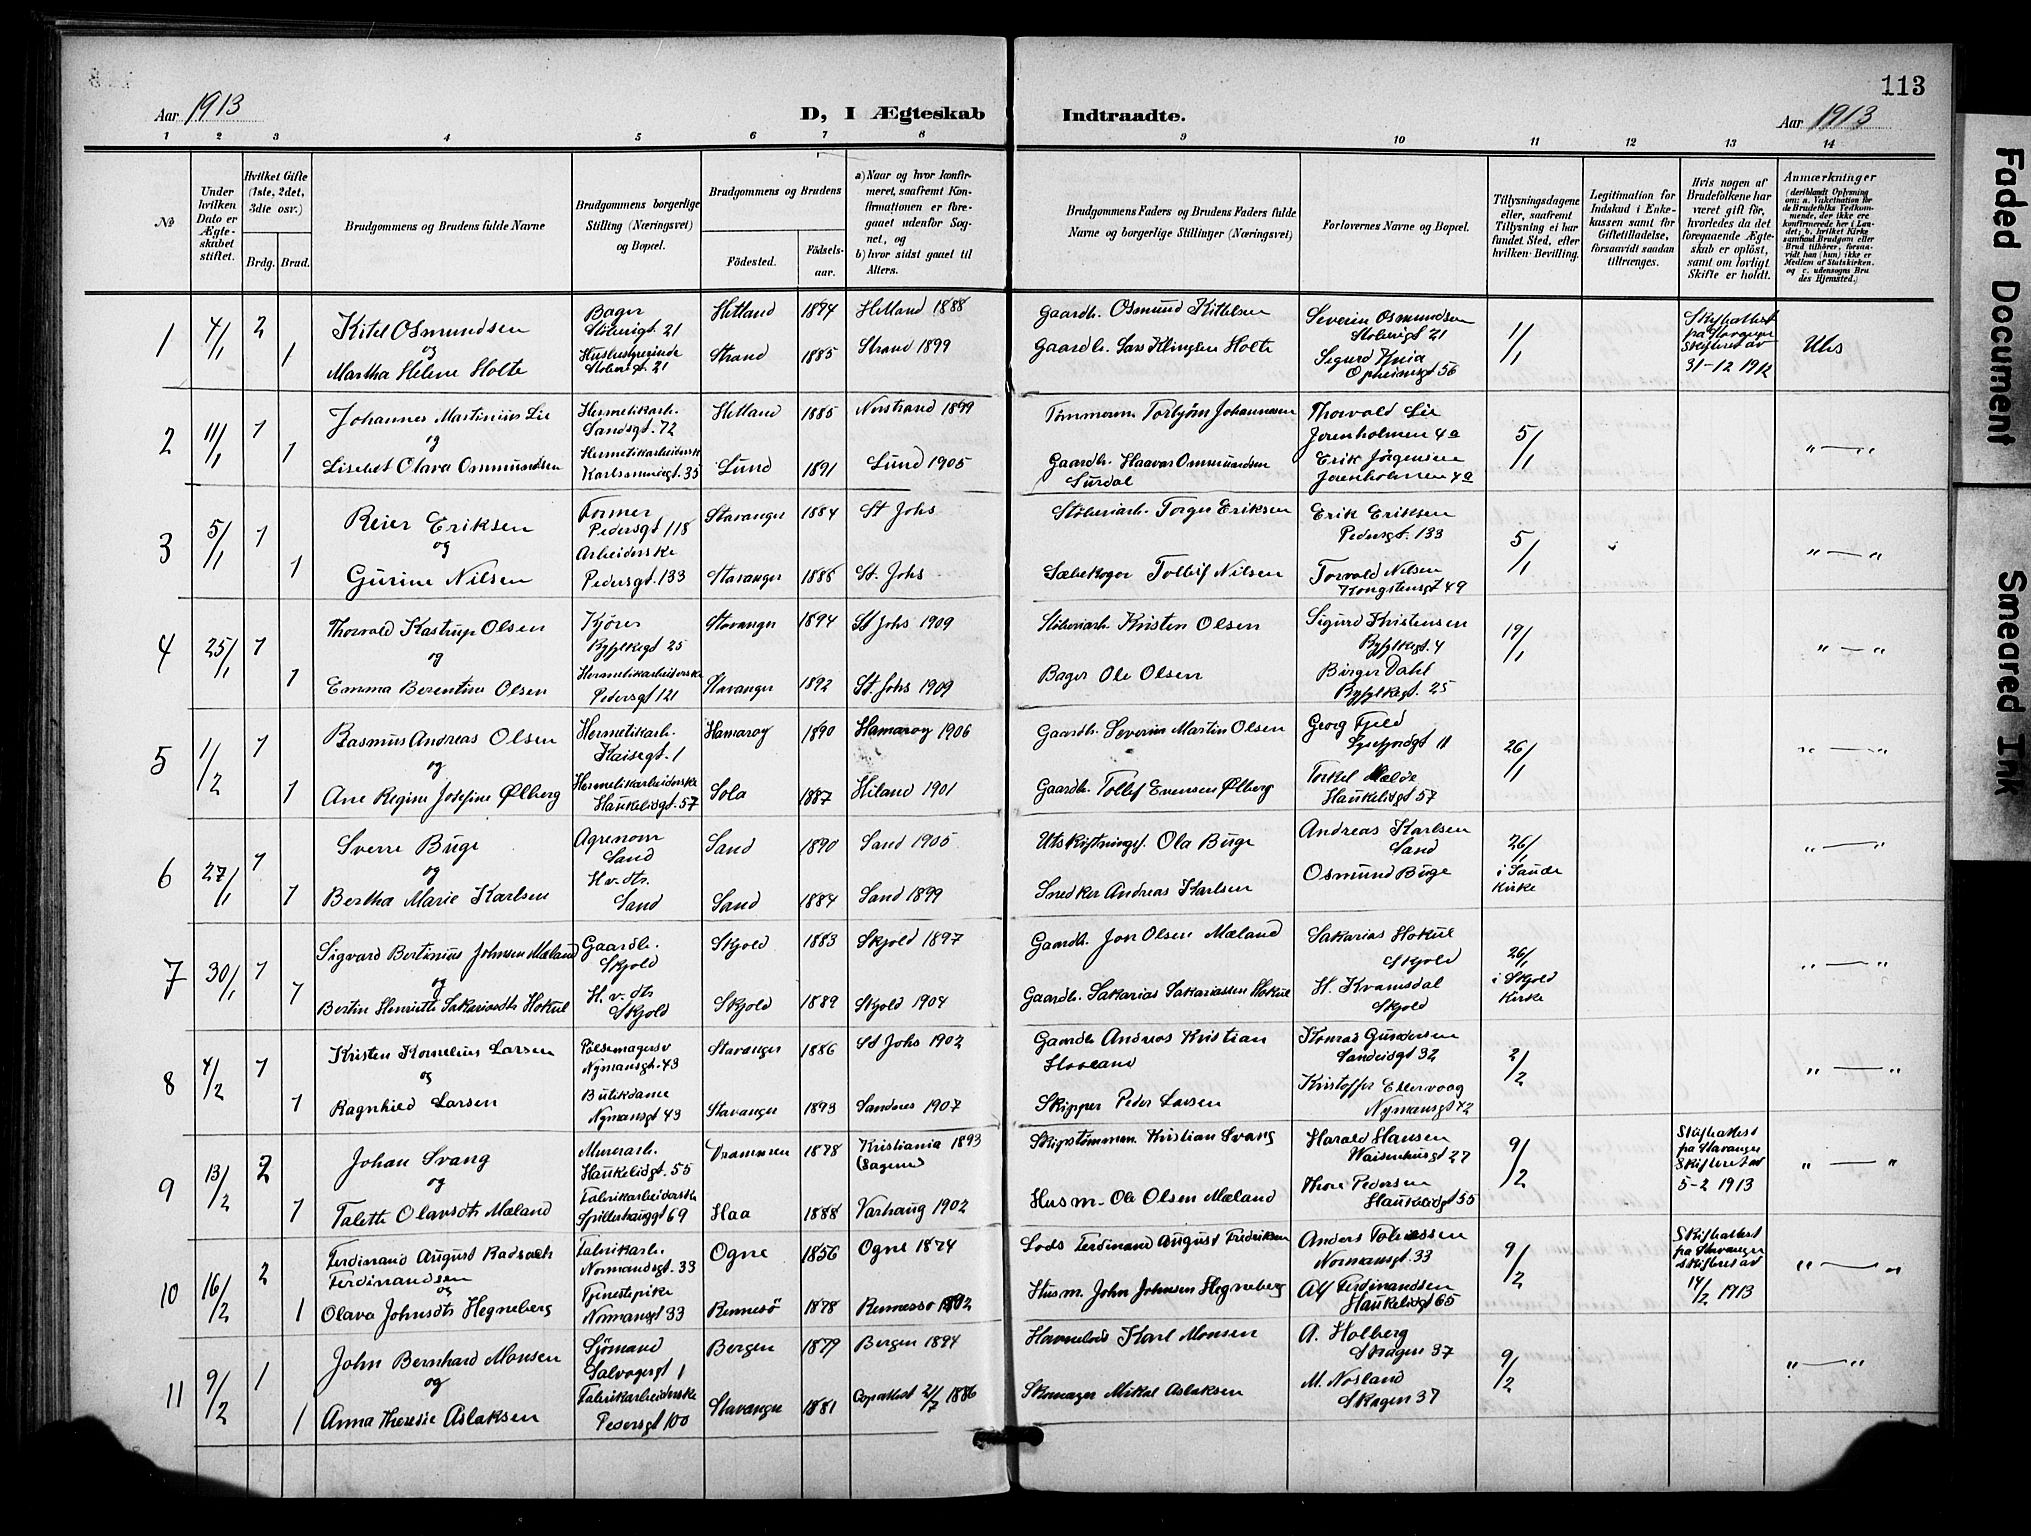 113
Aar 1913
D, I Ægteskab Indtraadte.
Aar 1913
1 2 3 4 5 6 7 8 9 10 11 12 13 14
№
Under hvilken Dato er Ægteskabet stiftet.
Hvilket Gifte (1ste, 2det, 3die osv.)
Brdg. Brud.
Brudgommens og Brudens fulde Navne
Brudgommens borgerlige Stilling (Næringsvei) og Bopæl.
Brudgommens og Brudens
Födested.
Födselsaar.
a) Naar og hvor konfirmeret, saafremt Konfirmationen er foregaaet udenfor Sognet, og
b) hvor sidst gaaet til Alters.
Brudgommens Faders og Brudens Faders fulde Navne og borgerlige Stillinger (Næringsvei)
Forlovernes Navne og Bopæl.
Tillysningsdagene eller, saafremt Tillysning ei har fundet Sted, efter hvilken Bevilling.
Legitimation for Indskud i Enkekassen samt for Giftetilladelse, forsaavidt saadan tiltrænges.
Hvis nogen af Brudefolkene har været gift før, hvorledes da det foregaaende Ægteskab er opløst, samt om lovligt Skifte er holdt.
Anmærkninger
(deriblandt Oplysning om: a. Vakcination for de Brudefolks Vedkommende, der ikke ere konfirmerede her i Landet; b. hvilket Kirkesamfund Brudgom eller Brud tilhører, forsaavidt han (hun) ikke er Medlem af Statskirken, og c. udensogns Brudes Hjemsted.)
1 4/1 2 Kitel Osmundsen Bager Støberigt 21 Hetland 1874 Hetland 1888 Gaardb. Osmund Kittelsen Severin Osmundsen Støberigt 21 1/1 Skifteattest på Stavanger Skifteret av 31-12 1912
og
1 Martha Helene Holte Husbestyrerinde Støberigt. 21 Strand 1885 Strand 1899 Gaardb. Lars Ellingsen Holte Sigurd Opheimsgt 56
2 11/1 1 Johannes Martinius Lie Hermetikarb. Sandsgt. 72 Hetland 1885 Nerstrand 1899 Tømmerm Torbjørn Johannesen Thorvald Lie Jorenholmen 4a 5/1 " — "
og
1 Lisebet Olava Ommundsen Hermetikarbeiderske Karlsminnegt. 35 Lund 1891 Lund 1905 Gaardb. Haavar Ommundsen Surdal Erik Jørgensen Jorenholmen 4a
3 5/1 1 Reier Eriksen Former Pedersgt 118 Stavanger 1884 St Johs Støberiarb. Torger Eriksen Erik Eriksen Pedersgt. 133 5/1 " — "
og
1 Gurine Nilsen Arbeiderske Pedersgt. 133 Stavanger 1886 St. Johs Sæbekoger Tollef Nilsen Torvald Nilsen Kongstensgt 49
4 25/1 1 Thorvald Kastrup Olsen Kjører Ryfylkegt 25 Stavanger 1894 St Johs 1909 Støberiarb. Kristen Olsen Sigurd Kristensen Ryfylkegt. 4 19/1 " — "
og
1 Emma Berentine Olsen Hermetikarbeiderske Pedersgt 121 Stavanger 1892 St. Johs 1909 Bager Ole Olsen Birger Dahl Ryfylkegt. 25
5 1/2 1 Rasmus Andreas Olsen Hermetikarb. Kaisegt. 1 Hamarøy 1890 Hamarøy 1906 Gaardb. Severin Martin Olsen Georg Fjeld Lysefjordgt 11 26/1 " — "
og
1 Ane Regine Josefine Ølberg Hermetikarbeiderske Haukelidgt. 57 Sola 1887 1901 Gaardb. Tollef Evensen Ølberg Torkel Melde Haukelidgt 57
6 27/1 1 Sverre Buge Agronom Sand Sand 1890 Sand 1905 Utskiftningsf. Ola Buge Andreas Karlsen Sand 26/1 i Saude Kirke " — "
og
1 Bertha Marie Karlsen H.v. dtr. Sand Sand 1884 Sand 1899 Snedker Andreas Karlsen Osmund Buge
7 30/1 1 Sigvard Bertinius Johnsen Mæland Gaardb. Skjold Skjold 1883 Skjold 1897 Gaardb. Jon Olsen Mæland Sakarias Hokul Skjold 26/1 i Skjold Kirke " — "
og
1 Bertin Henriette Sakariasdtr Hokul H.v. dtr Skjold Skjold 1889 Skjold 1904 Gaardb. Sakarias Sakariassen Hokul H. Kvamsdal Skjold
8 4/2 1 Kristen Kornelius Larsen Pølsemagersv Nymansgt. 43 Stavanger 1886 St Johs 1902 Gaardb Andreas Kristian Hoveland Konrad Gundersen Sandeidsgt 32 2/2 " — "
og
1 Ragnhild Larsen Butikdame Nymansgt 43 Stavanger 1893 Sandnes 1907 Skipper Peder Larsen Kristoffer Ellervaag Nymansgt 42
9 13/2 2 Johan Svang Murerarb. Haukelidgt. 55 Drammen 1878 Kristiania 1893 (Sagene) Skipstømmerm. Kristian Svang Harald Hansen Waisenhusgt 27 9/2 Skifteattest på Stavanger Skifteret av 5-2 1913 " — "
og
1 Talette Olavsdtr Mæland Fabrikarbeiderske Spilderhauggt 69 Haa 1888 Varhaug 1902 Husm. Ole Olsen Mæland Thore Pedersen Haukelidgt 55
10 16/2 2 Ferdinand August Radsach Ferdinandsen Fabrikarb. Normandsgt. 33 Ogne 1856 Ogne 1874 Lods Ferdinand August Fredriksen Anders Tobiassen Normansgt. 33 9/2 Skifteattest på Stavanger Skifteret av 14/2 1913 " — "
og
1 Olava Johnsdtr Hegneberg Tjenestepike Normansgt 33 Rennesö 1878 Rennesø 1892 Husm. John Johnsen Hegneberg Alf Ferdinandsen Haukelidgt 65
11 9/2 1 John Bernhard Monsen Sjømand Salvagergt 1 Bergen 1879 Bergen 1894 Havnelods Karl Monsen A. Holberg Skagen 37 9/2 " — "
og
1 Anna Theresie Aslaksen Fabrikarbeiderske Pedersgt 100 Stavanger 1881 2/7 1886 Skomager Mikal Aslaksen M. Nosland Skagen 37
Faded Document
Smeared Ink